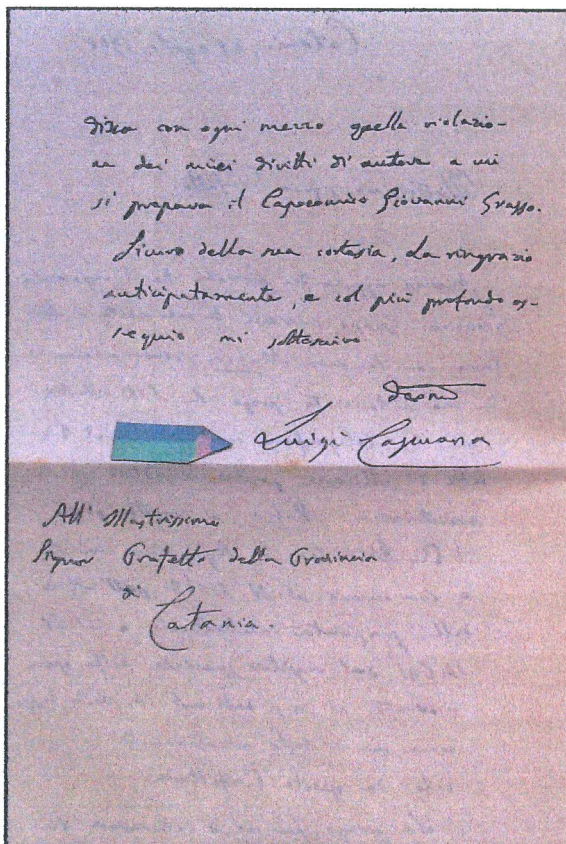 disca con ogni mezzo quella violazio-
ne dei miei diritti di autore a cui
si prepara il Capocomico Giovanni Grasso.
Sicuro della sua cortesia, La ringrazio
anticipatamente, e col più profondo os-
sequio mi sottoscrivo
Luigi Capuana
All' Illustrissimo
Signor Prefetto della Provincia
di
Catania.